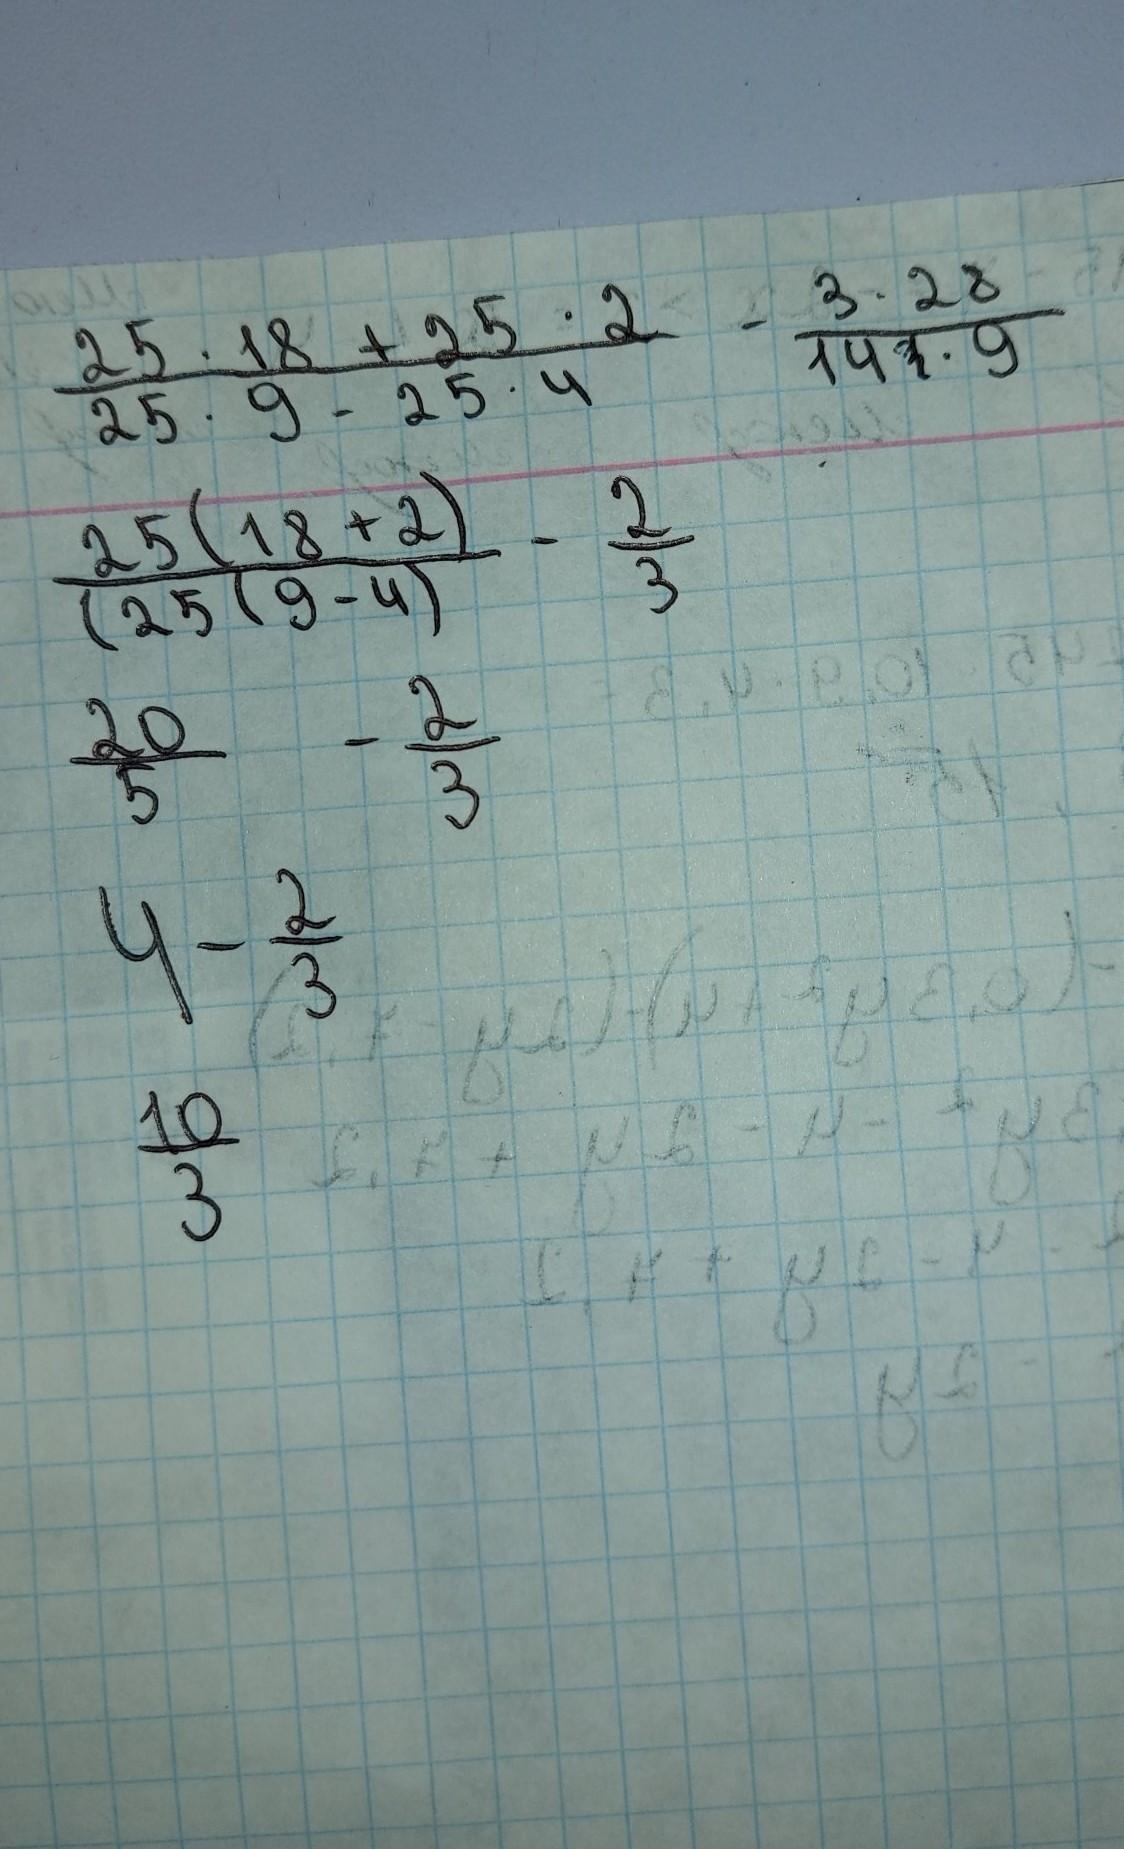 (25 · 18 + 25 · 2)/(25 · 9 - 25 · 4) - (3 · 28)/(14 · 9)
25(18+2)/(25(9-4) - 2/3
20/5 - 2/3
4 - 2/3
10/3